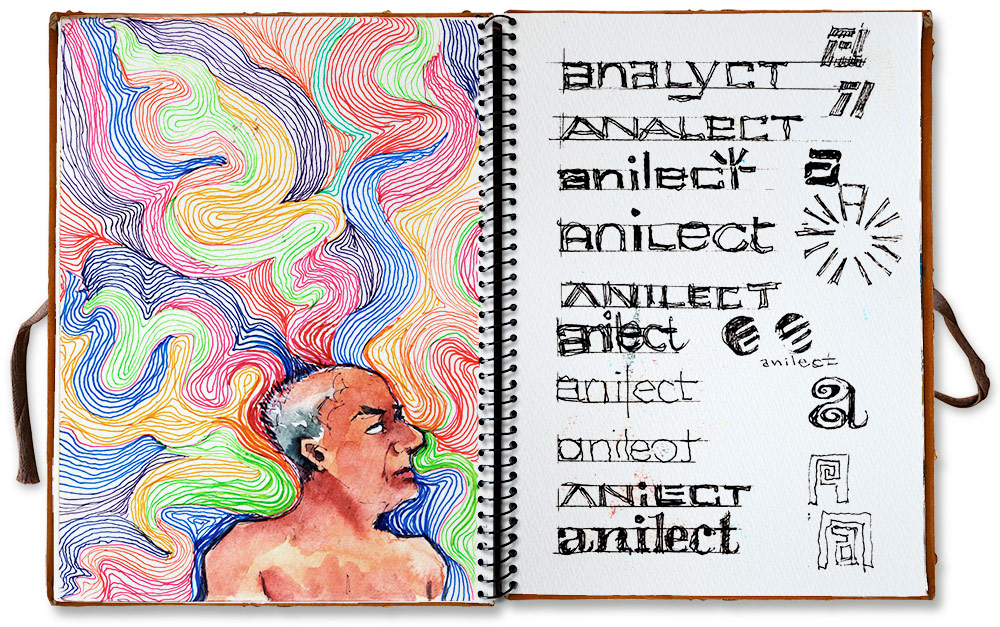 analycT
a
ANALECT
anilect
a
A
aniLect
ANILECT
anilect
anilect
anilect
a
anilect
A
ANiLECT
a
anilect